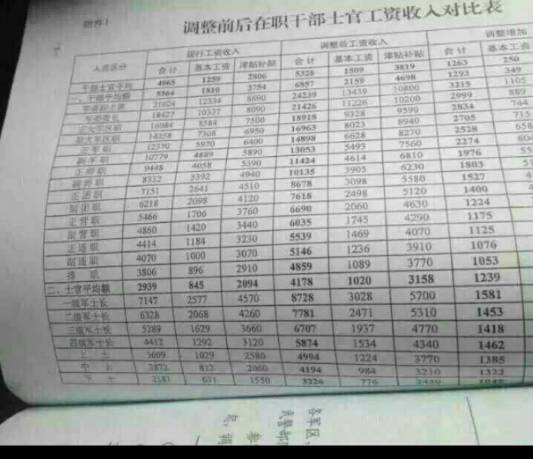 附件1
调整前后在职干部士官工资收入对比表
人员区分 现行工资收入 调整后工资收入 调整增加
合计 基本工资 津贴补贴 合计 基本工资 津贴补贴 合计 基本工资
干部士官平均 4065 1259 2806 5328 1509 3819 1263 250
一、干部平均额 5564 1810 3754 6857 2159 4698 1293 349
军委副主席 21024 12334 8690 24239 13439 10800 3215 1105
军委委员 18427 10337 8090 21426 11226 10200 2999 889
正大军区职 16084 8584 7500 18918 9328 9590 2834 744
副大军区职 14258 7308 6950 16963 8023 8940 2705
正军职 12370 5970 6400 14898 6628 8270 2528 658
副军职 10779 4889 5890 13053 5493 7560 2274 604
正师职 9448 4058 5390 11424 4614 6810 1976
副师职 8332 3392 4940 10135 3905 6230 1803
正团职 7151 2641 4510 8678 3098 5580 1527
副团职 6218 2098 4120 7618 2498 5120 1400
正营职 5466 1706 3760 6690 2060 4630 1224
副营职 4860 1420 3440 6035 1745 4290 1175
正连职 4414 1184 3230 5539 1469 4070 1125
副连职 4070 1000 3070 5146 1236 3910 1076
排职 3806 896 2910 4859 1089 3770 1053
二、士官平均额 2939 845 2094 4178 1020 3158 1239
一级军士长 7147 2577 4570 8728 3028 5700 1581
二级军士长 6328 2068 4260 7781 2471 5310 1453
三级军士长 5289 1629 3660 6707 1937 4770 1418
四级军士长 4412 1292 3120 5874 1534 4340 1462
上士 3609 1029 2580 4994 1224 3770 1385
中士 2872 812 2060 4194 984 3210 1322
下士 2181 631 1550 3226 776
各军区